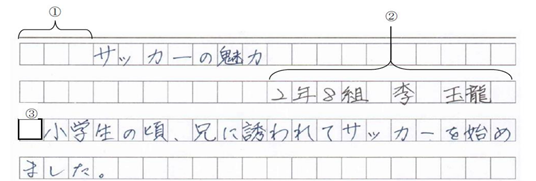 ①
②
サッカーの魅力
2年8組 李 玉龍
③
小学生の頃、兄に誘われてサッカーを始め
ました。